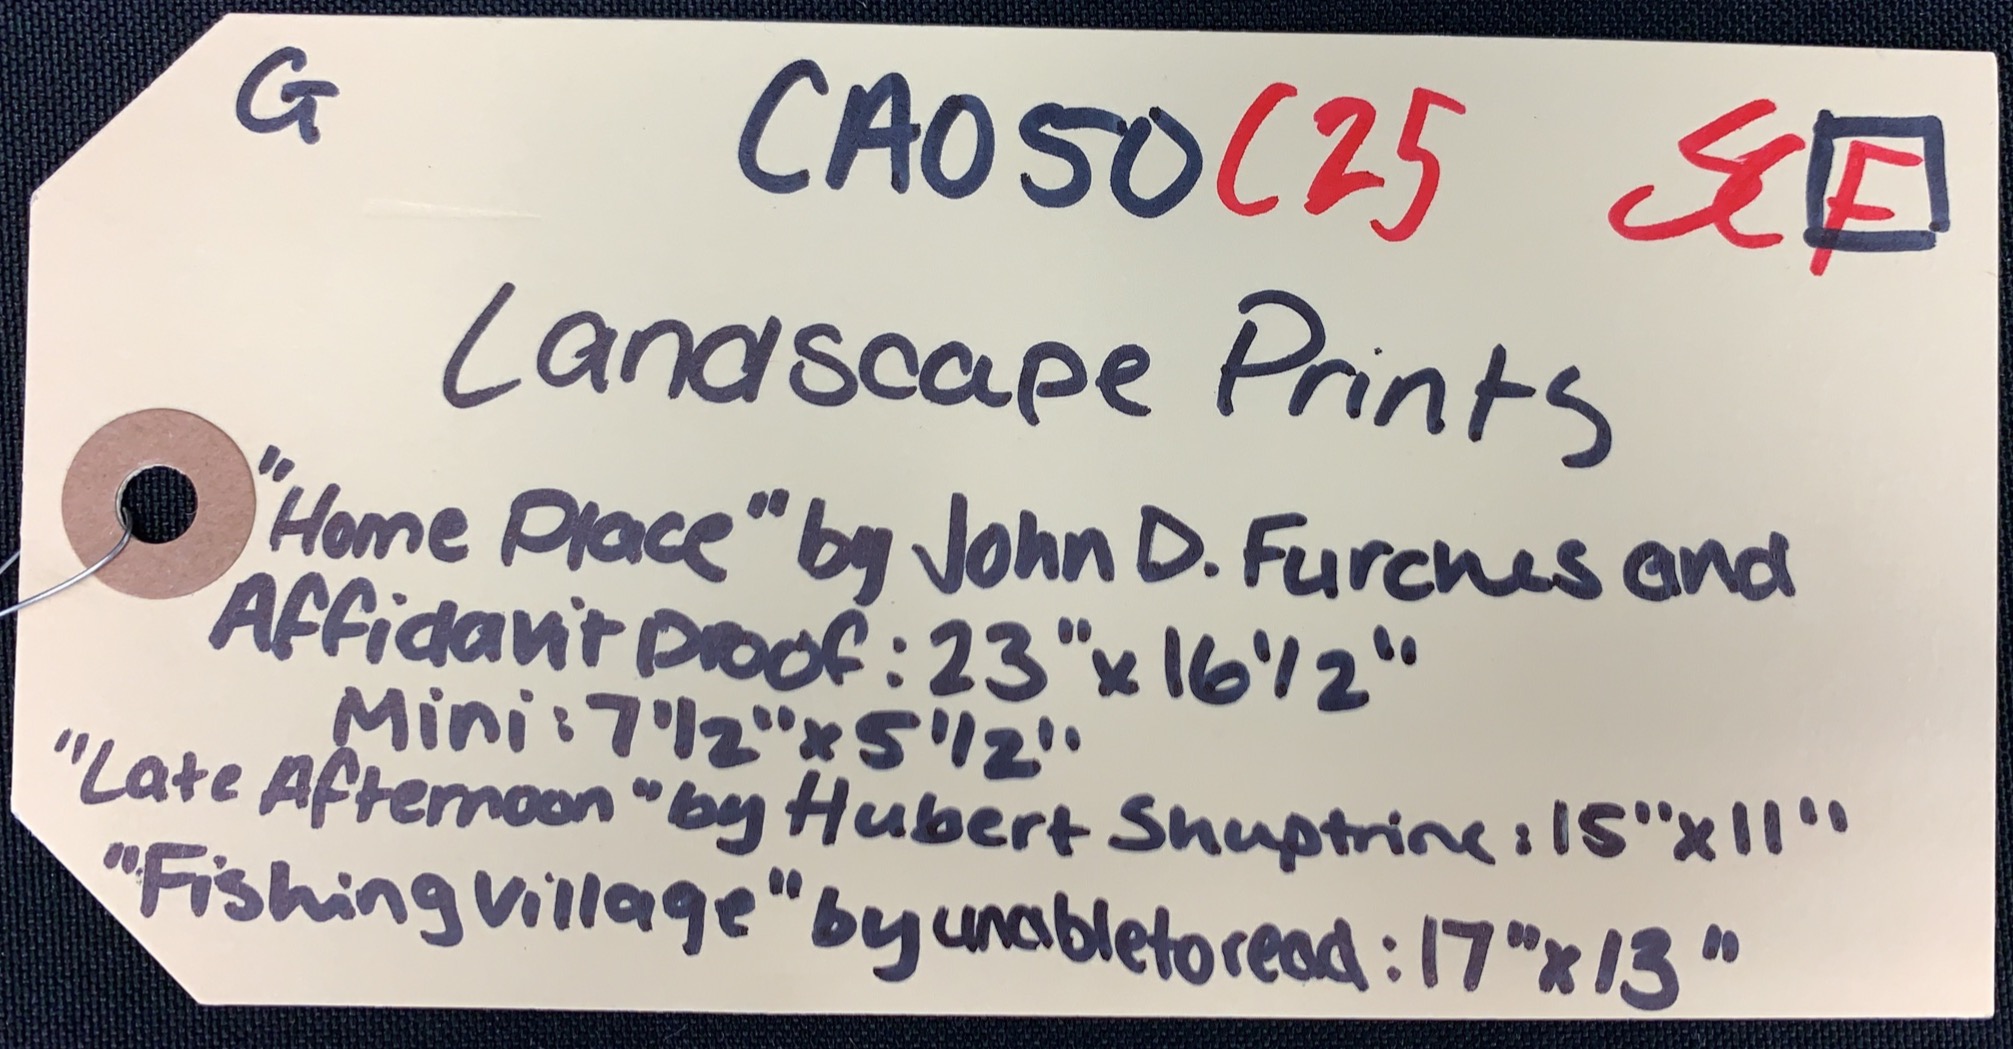 G CA050 C25 F
Landscape Prints
"Home Place" by John D. Furches and
Affidavit Proof: 23" x 16 1/2"
Mini: 7 1/2" x 5 1/2"
"Late Afternoon" by Hubert Shuptrine: 15" x 11"
"Fishing Village" by unable to read: 17" x 13"